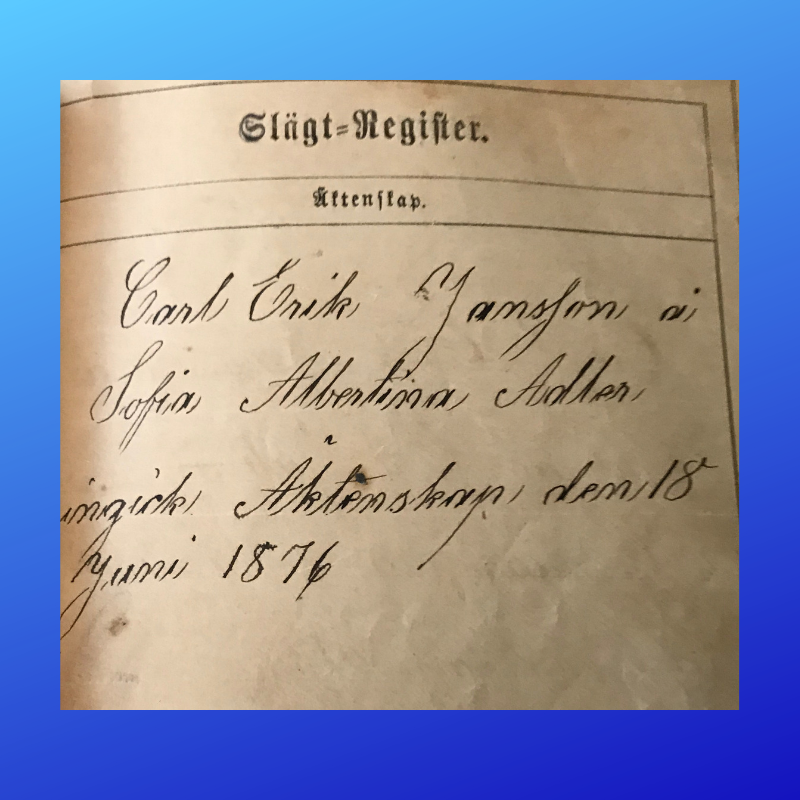 Slägt-Register.
Äktenskap.
Carl Erik Jansson
Sofia Albertina Adler
ingick Äktenskap den 18
Juni 1876